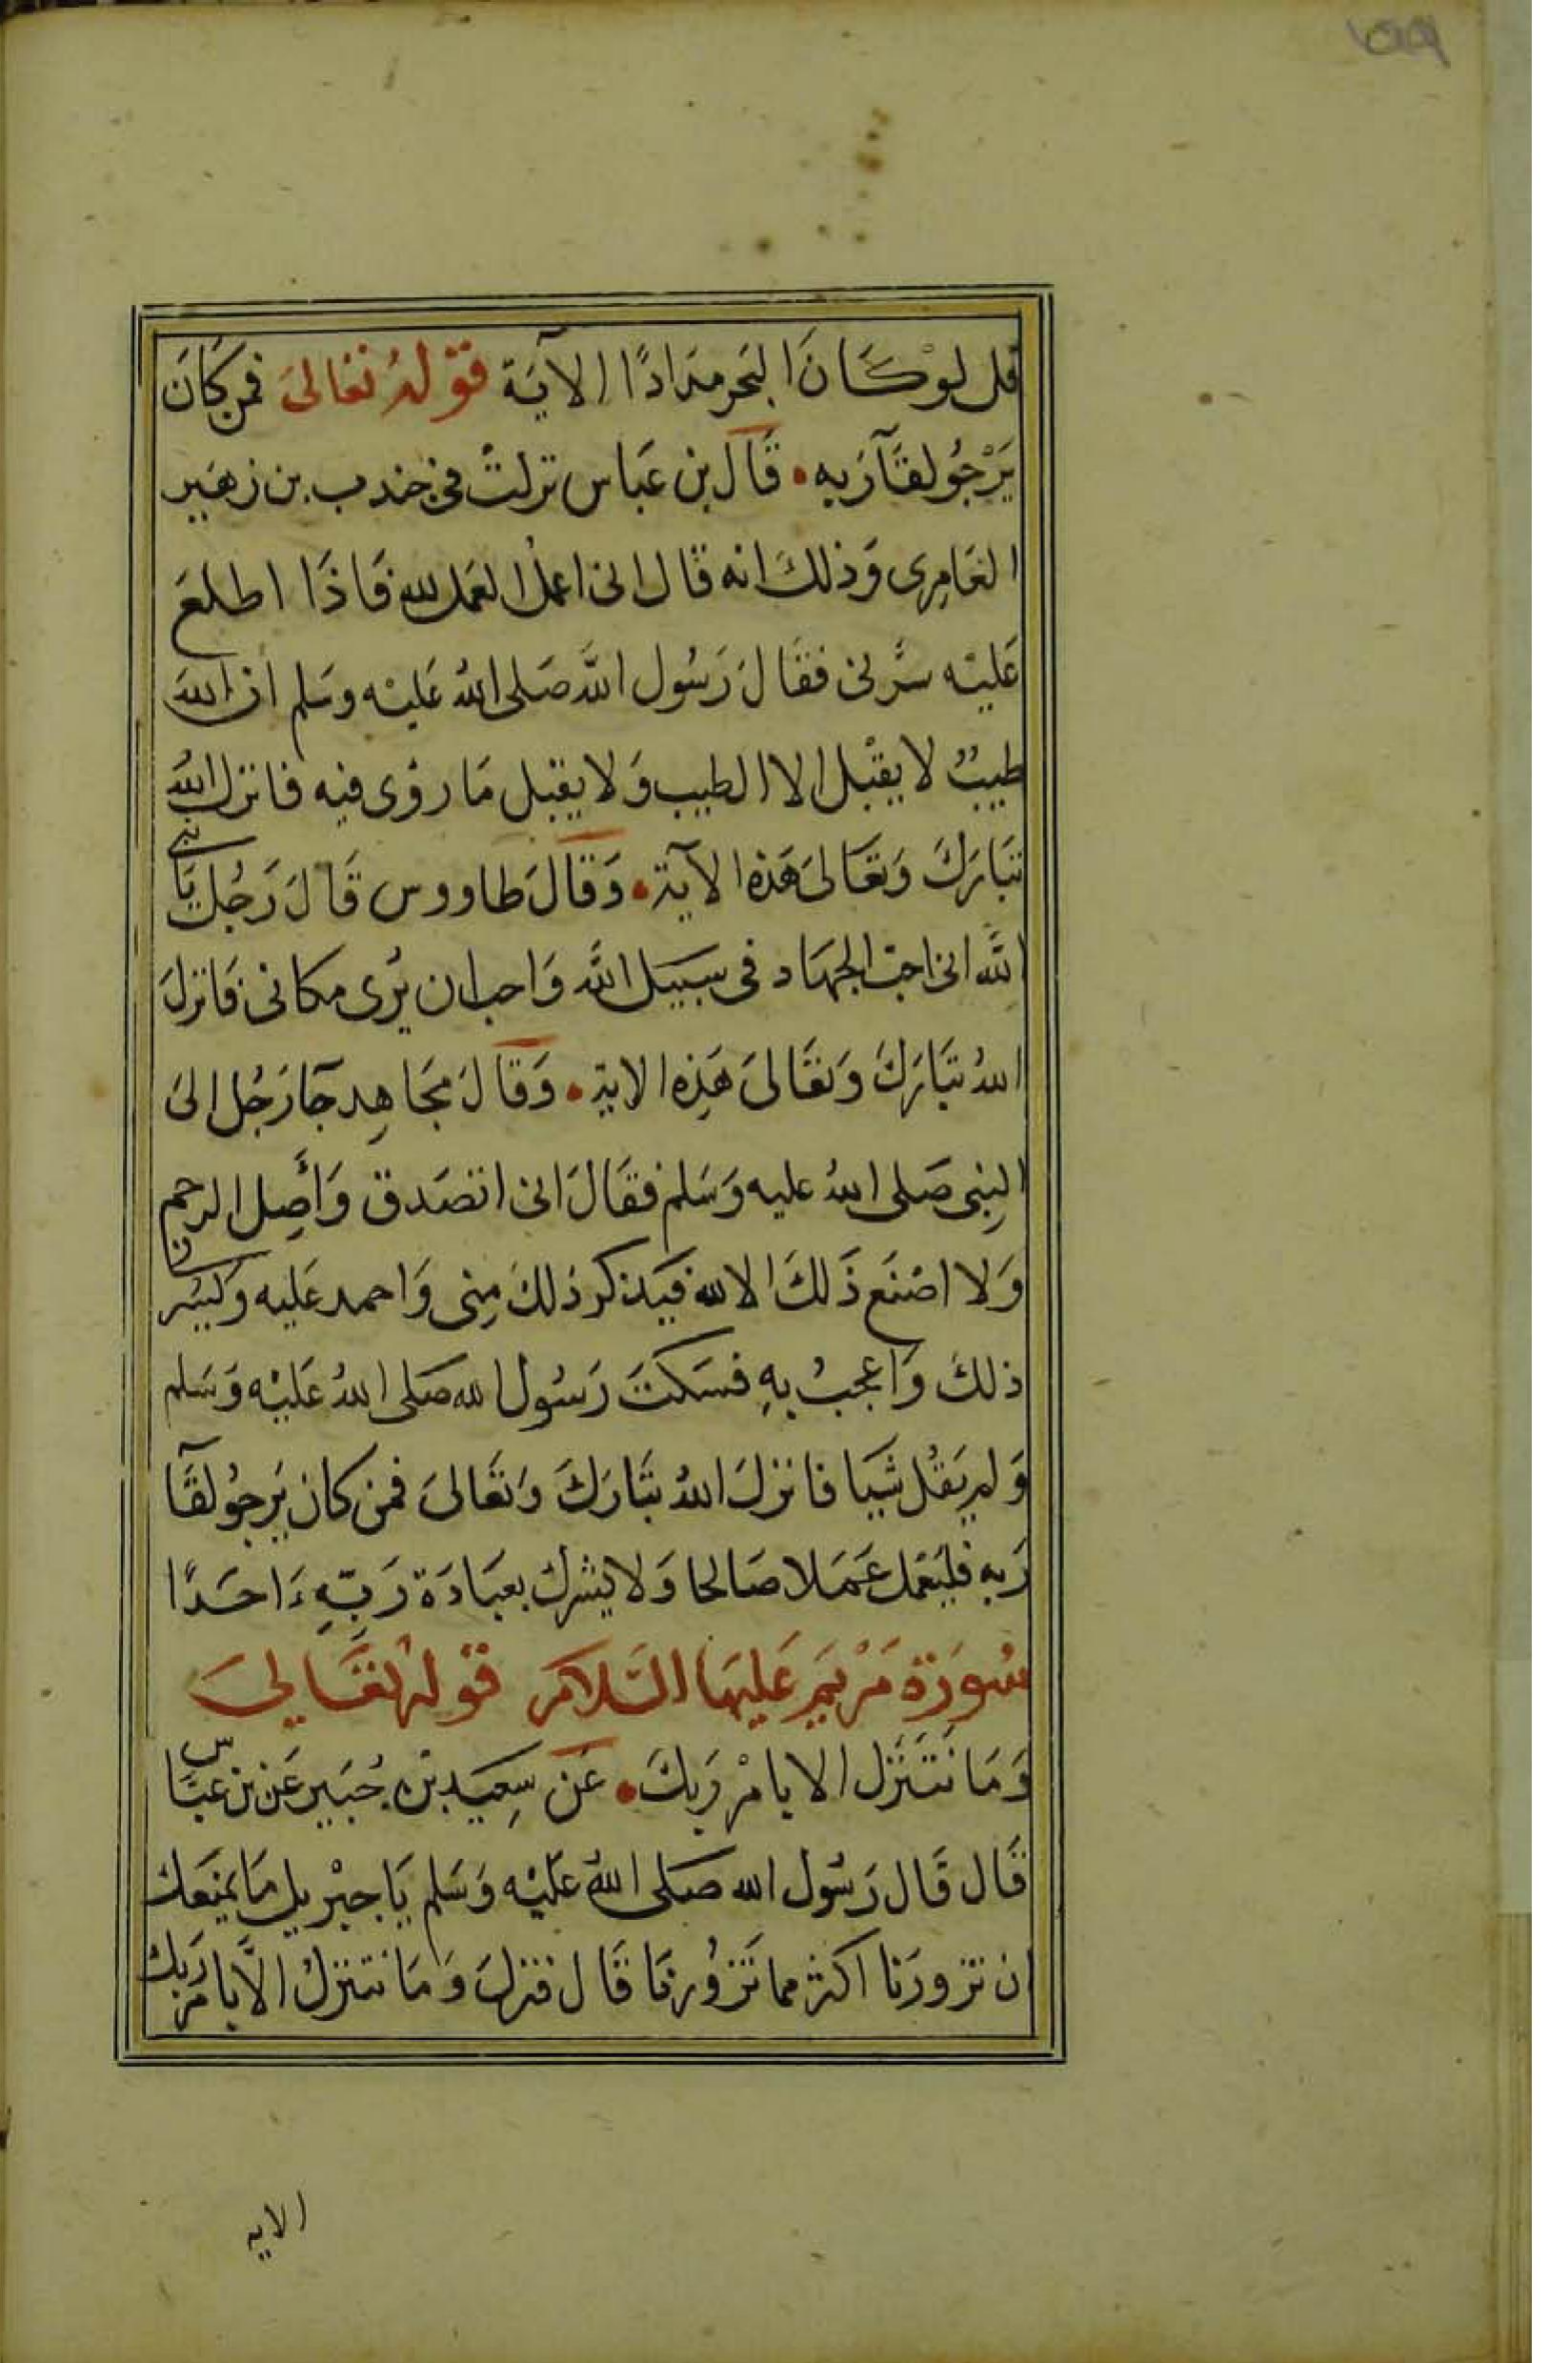 قل لوْ كَانَ البَحر مدَادًا الآية قوْلهُ تعَالىَ فمن كَانَ
يَرْجُو لقآرَبه • قَالَ بن عَباس نزلتْ في جندب بن زهَير
العَامِرى وَذلكَ انه قال انى اعمل العَمل لله فَاذَا اطلعَ
عَليْه سَّرنى فقَالَ رَسُول اللَّه صَلى اللهُ عَليْه وسَلم ان اللهَ
طيبٌ لا يقْبَل الا الطيب وَلا يقبل مَا روُى فيه فانزل اللهُ
تبَارَكَ وَتعَالىَ هَذه الآية • وَقالَ طاووس قَالَ رَجُل يَا نبى
اللَّه انى احبّ الجهَاد فى سبيل اللَّه وَاحب ان يُرى مكانى فَانزلَ
اللهُ تبَارَكَ وَتعَالىَ هَذِه الاية • وَقَالَ مجَاهِد جَآ رَجُل الىَ
النِبى صَلى اللهُ عليه وَسَلم فقَالَ انى اتصَدق وَأَصِل الرحم
وَلا اصْنَع ذَلكَ الا لله فيَذكر ذلكَ مِنى وَاحمد عَليه وَيَسُرنى
ذلكَ وَاعجبُ بهِ فسَكتَ رَسُول الله صَلى اللهُ عَليْه وَسَلم
وَلم يَقُل شَيا فانزلَ اللهُ تبَارَكَ وَتعَالىَ فمن كان يَرجوُ لقَآ
رَبه فليَعْمل عَمَلا صَالحا وَلا يشرك بعبَادَة رَبّهِ ءَاحَدًا
سُورَة مَرْيَم عَليهَا السَّلام قوْلهُ تعَالىَ
وَمَا نَتَنَزل الا بامْر رَبكَ • عَن سِعيَد بْن جُبَير عَن بن عبَّاس
قَال قَال رَسُول الله صَلى اللهُ عَليْه وَسَلم يَا جبْريل مَا يمنَعك
ان تزورَنا اكثر مما تَزوُرنَا قَال فنزلَ وَمَا نتنزلُ الاَّ بامر رَبك
الايه